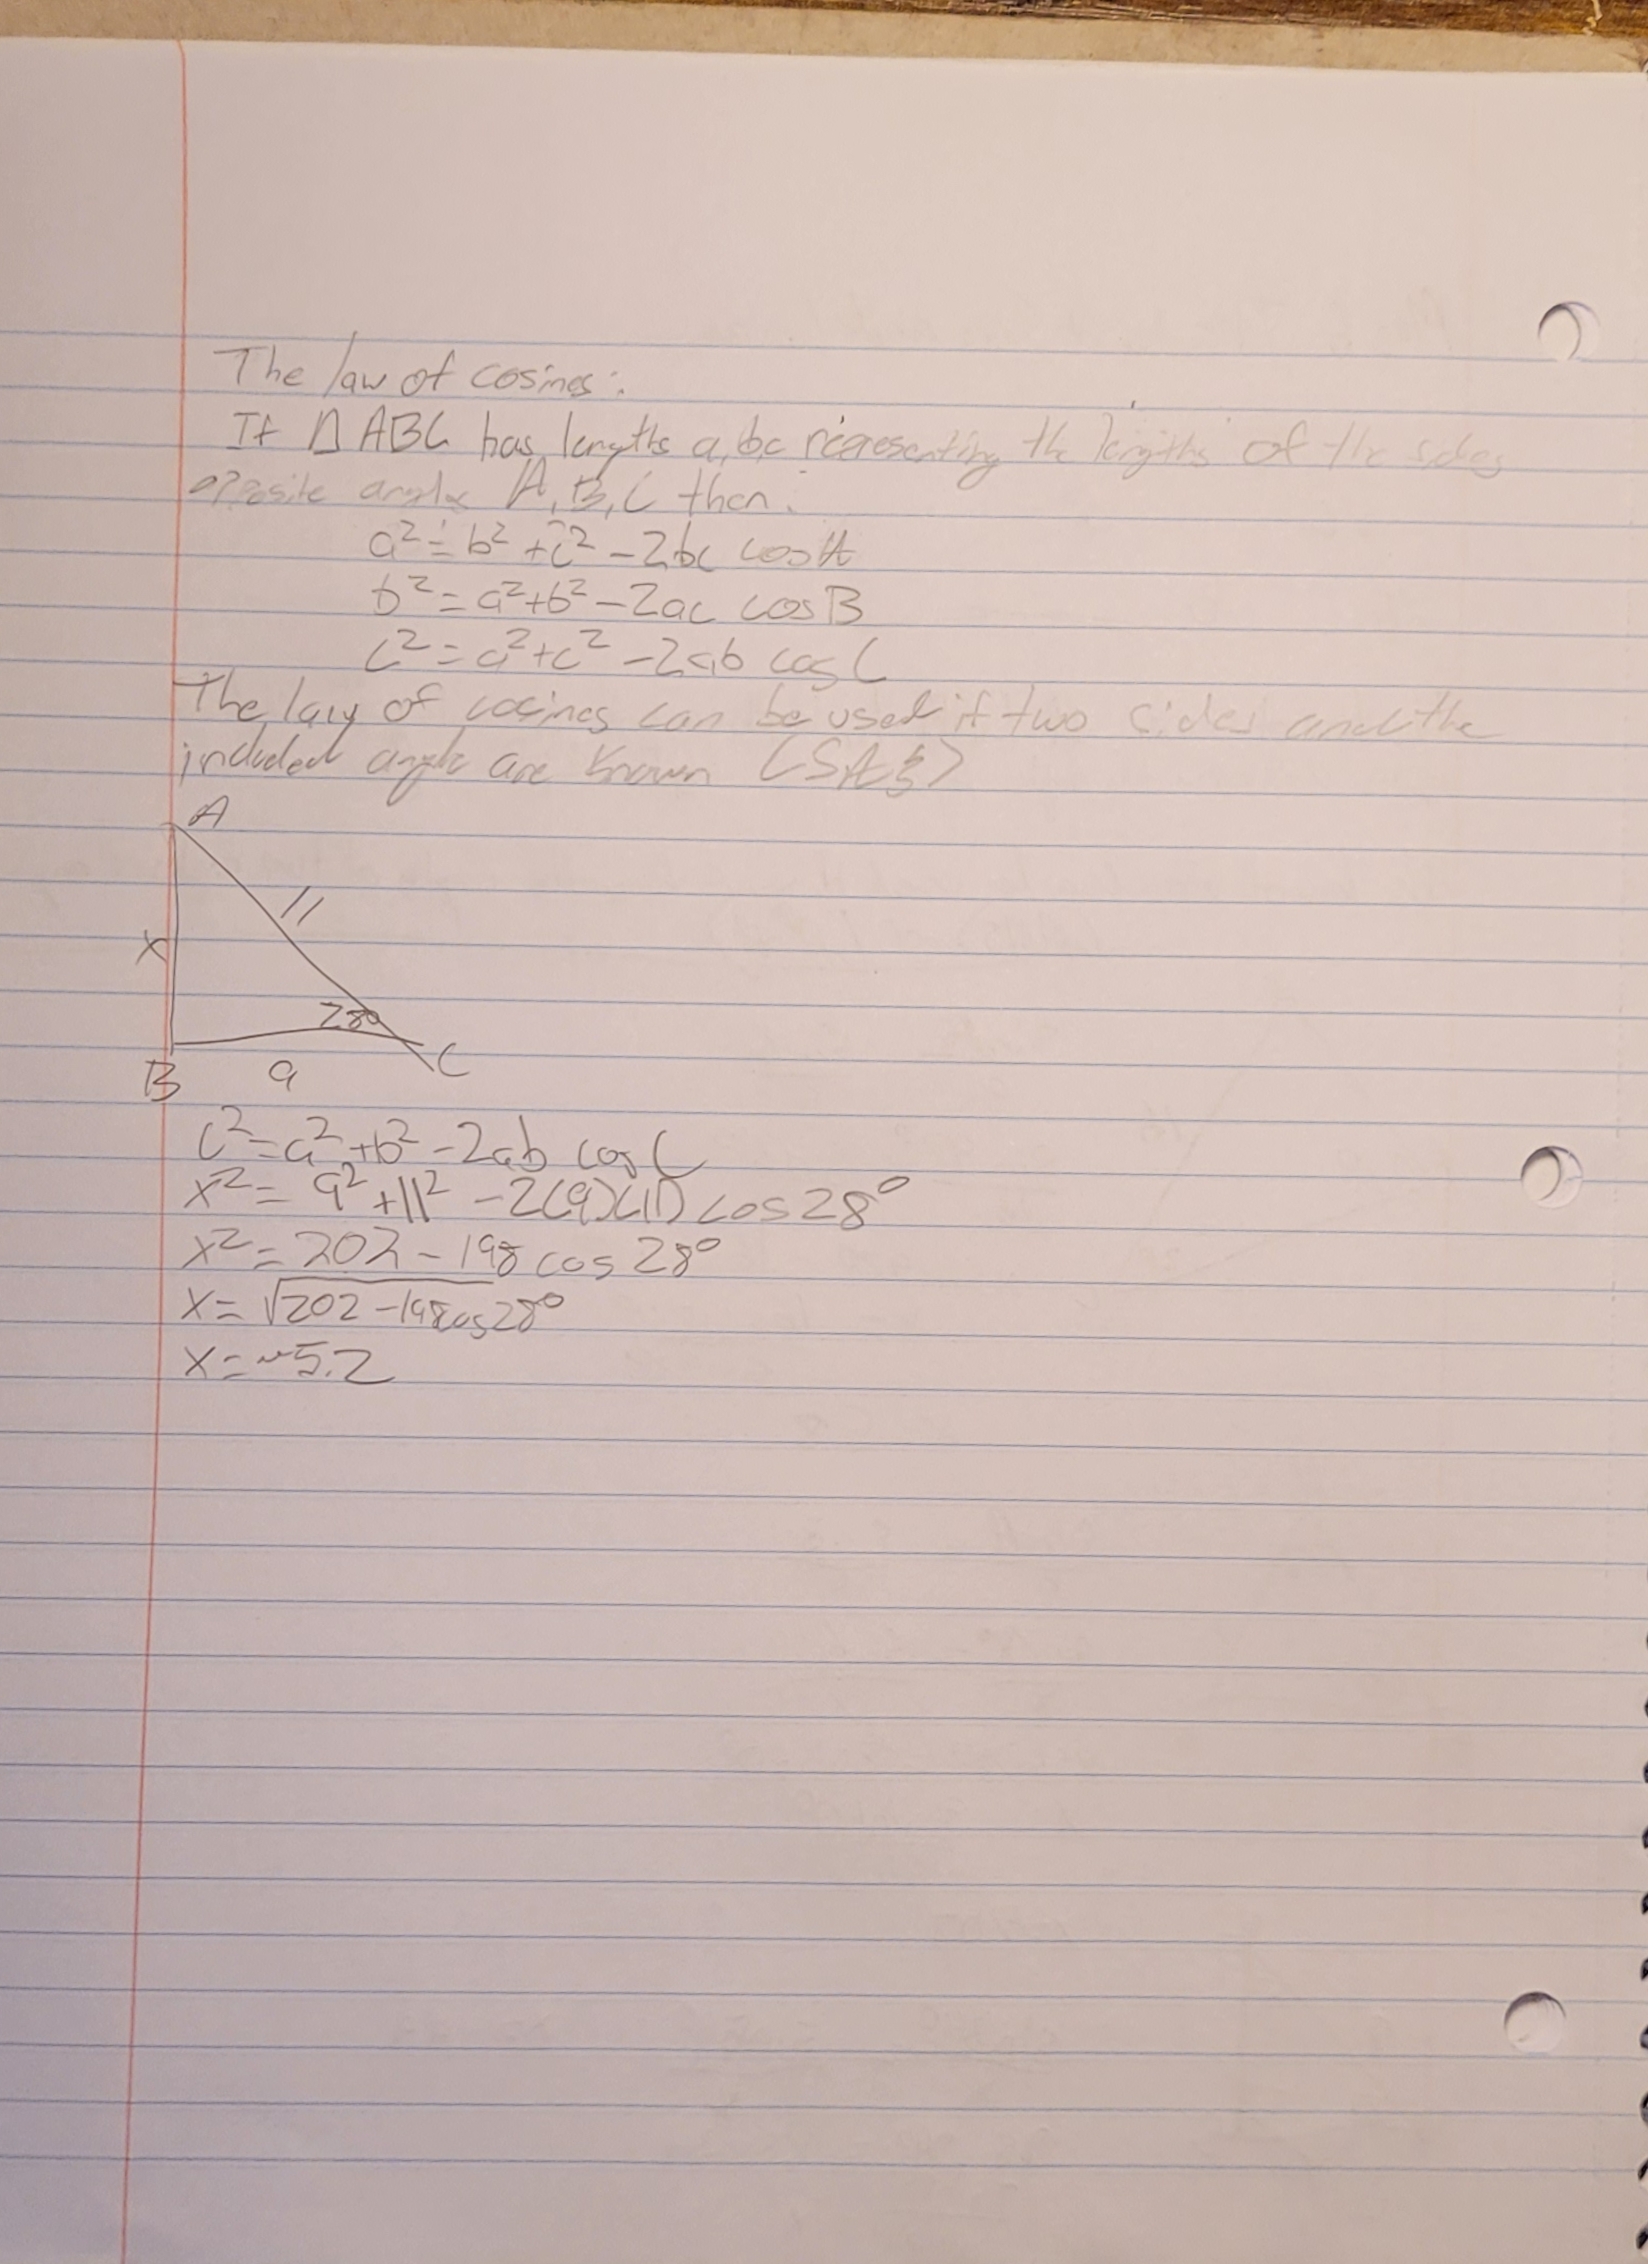 The law of cosines:
If △ABC has lengths a, b, c representing the lengths of the sides
opposite angles A, B, C then:
a² = b² + c² - 2bc cos A
b² = a² + b² - 2ac cos B
c² = a² + c² - 2ab cos C
The law of cosines can be used if two sides and the
included angle are known (SAS)
A
11
x
28°
B 9 C
c² = a² + b² - 2ab cos C
x² = 9² + 11² - 2(9)(11) cos 28°
x² = 202 - 198 cos 28°
x = √202 - 198cos28°
x = ~5.2